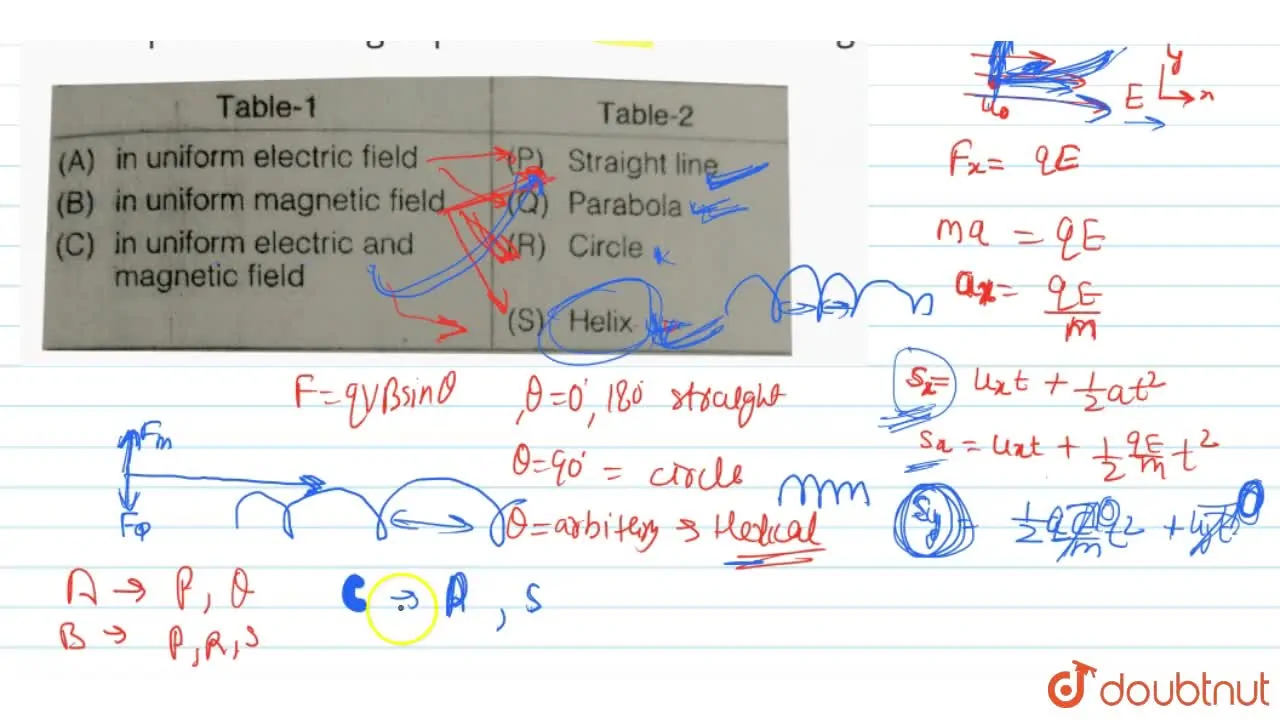 Table-1
Table-2
(A) in uniform electric field
(P) Straight line
(B) in uniform magnetic field
(Q) Parabola
(C) in uniform electric and
magnetic field
(R) Circle
(S) Helix
u₀
E
y
x
Fx = qE
ma = qE
ax = qE/m
Sx = uxt + 1/2 at²
Sx = uxt + 1/2 qE/m t²
Sy =
F = qVBsinθ , θ=0°, 180° straight
θ=90° = circle
θ=arbitery → Helical
Fm
A → P, Q
B → P, R, S
C → P, S
doubtnut